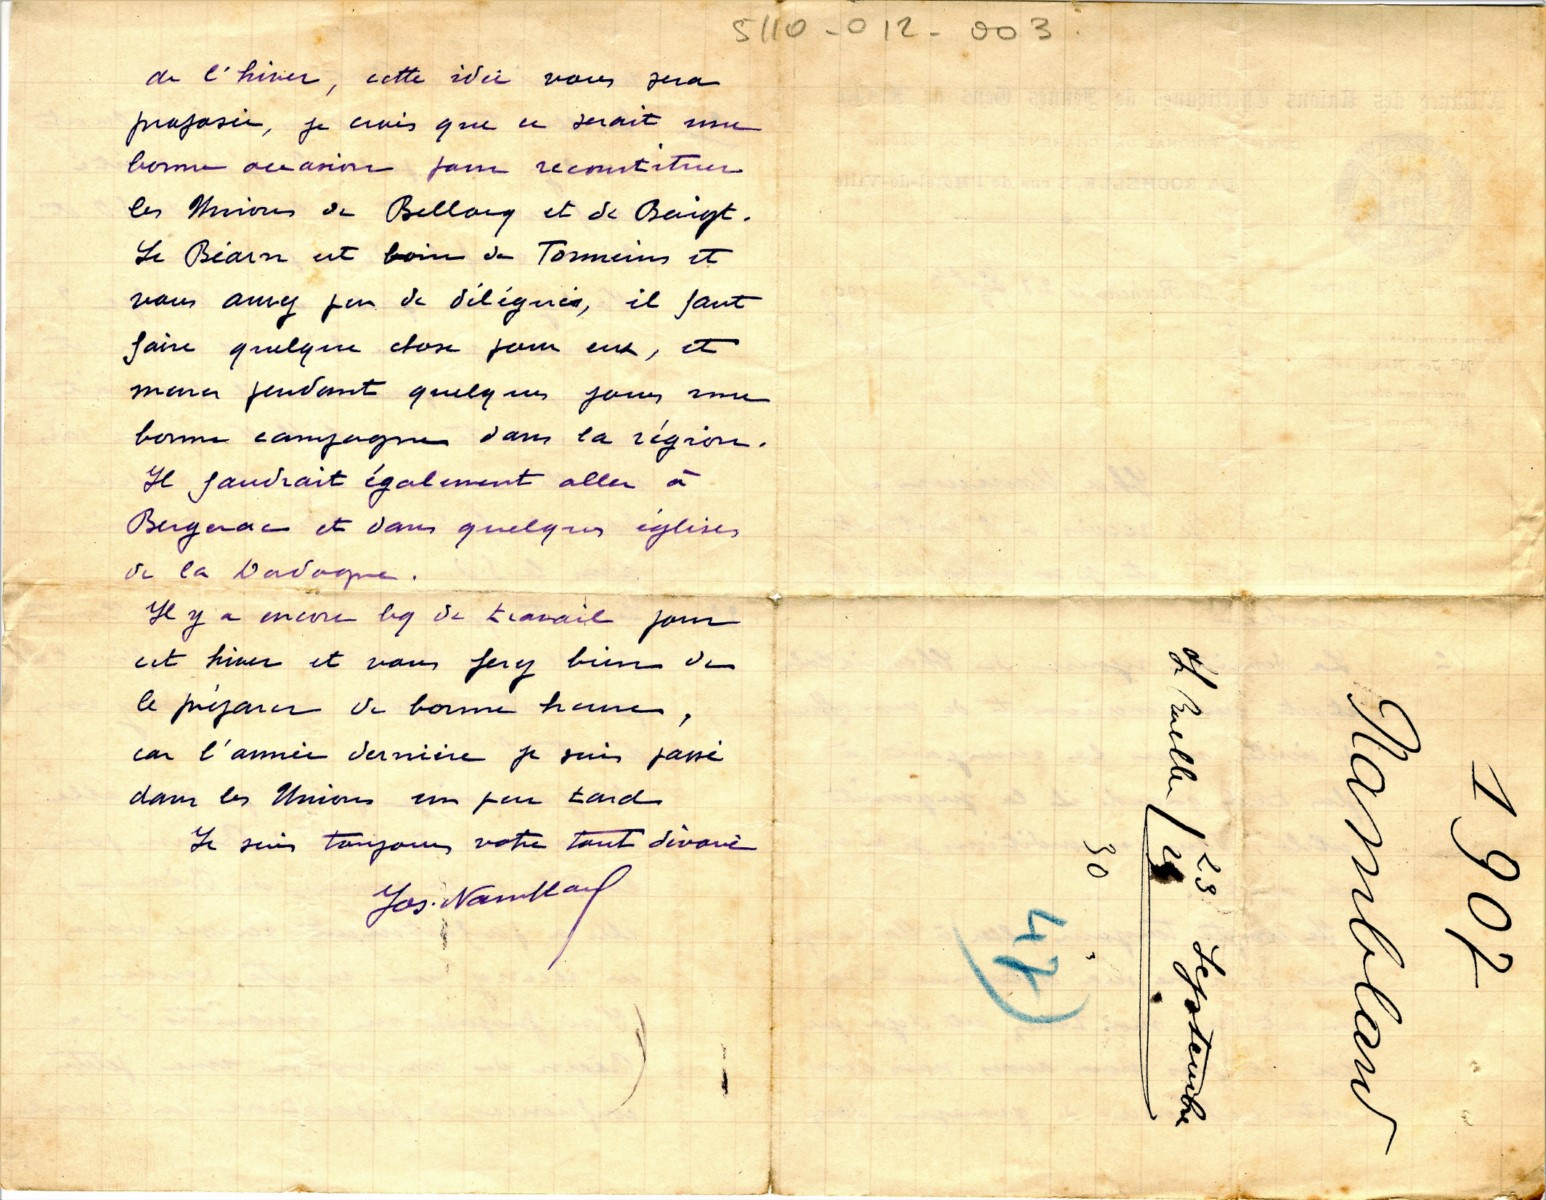 5110-012-003
de l'hiver, cette idée vous sera
proposée, je crois que ce serait une
bonne occasion pour reconstituer
les Unions de Bellocq et de Baigt.
Le Béarn est loin de Tonneins et
vous aurez peu de délégués, il faut
faire quelque chose pour eux, et
mener pendant quelques jours une
bonne campagne dans la région.
Il faudrait également aller à
Bergerac et dans quelques églises
de la Dordogne.
Il y a encore bcq de travail pour
cet hiver et vous ferez bien de
le préparer de bonne heure,
car l'année dernière je suis passé
dans les Unions un peu tard
Je suis toujours votre tout dévoué
Jos. Nambland
1902
Nambland
23 Septembre
30
47